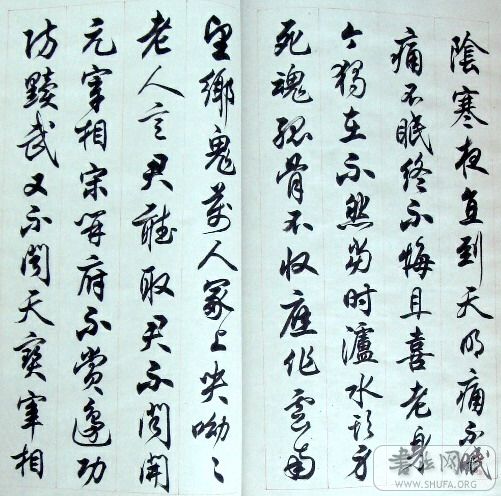 陰寒夜直到天明痛不眠
痛不眠終不悔且喜老身
今獨在不然當时瀘水頭身
死魂孤骨不收應作雲南
望鄉鬼萬人冢上哭呦〻
老人言君聽取君不聞開
元宰相宋開府不賞邊功
防黷武又不聞天寶宰相
WWW.SHUFA.ORG